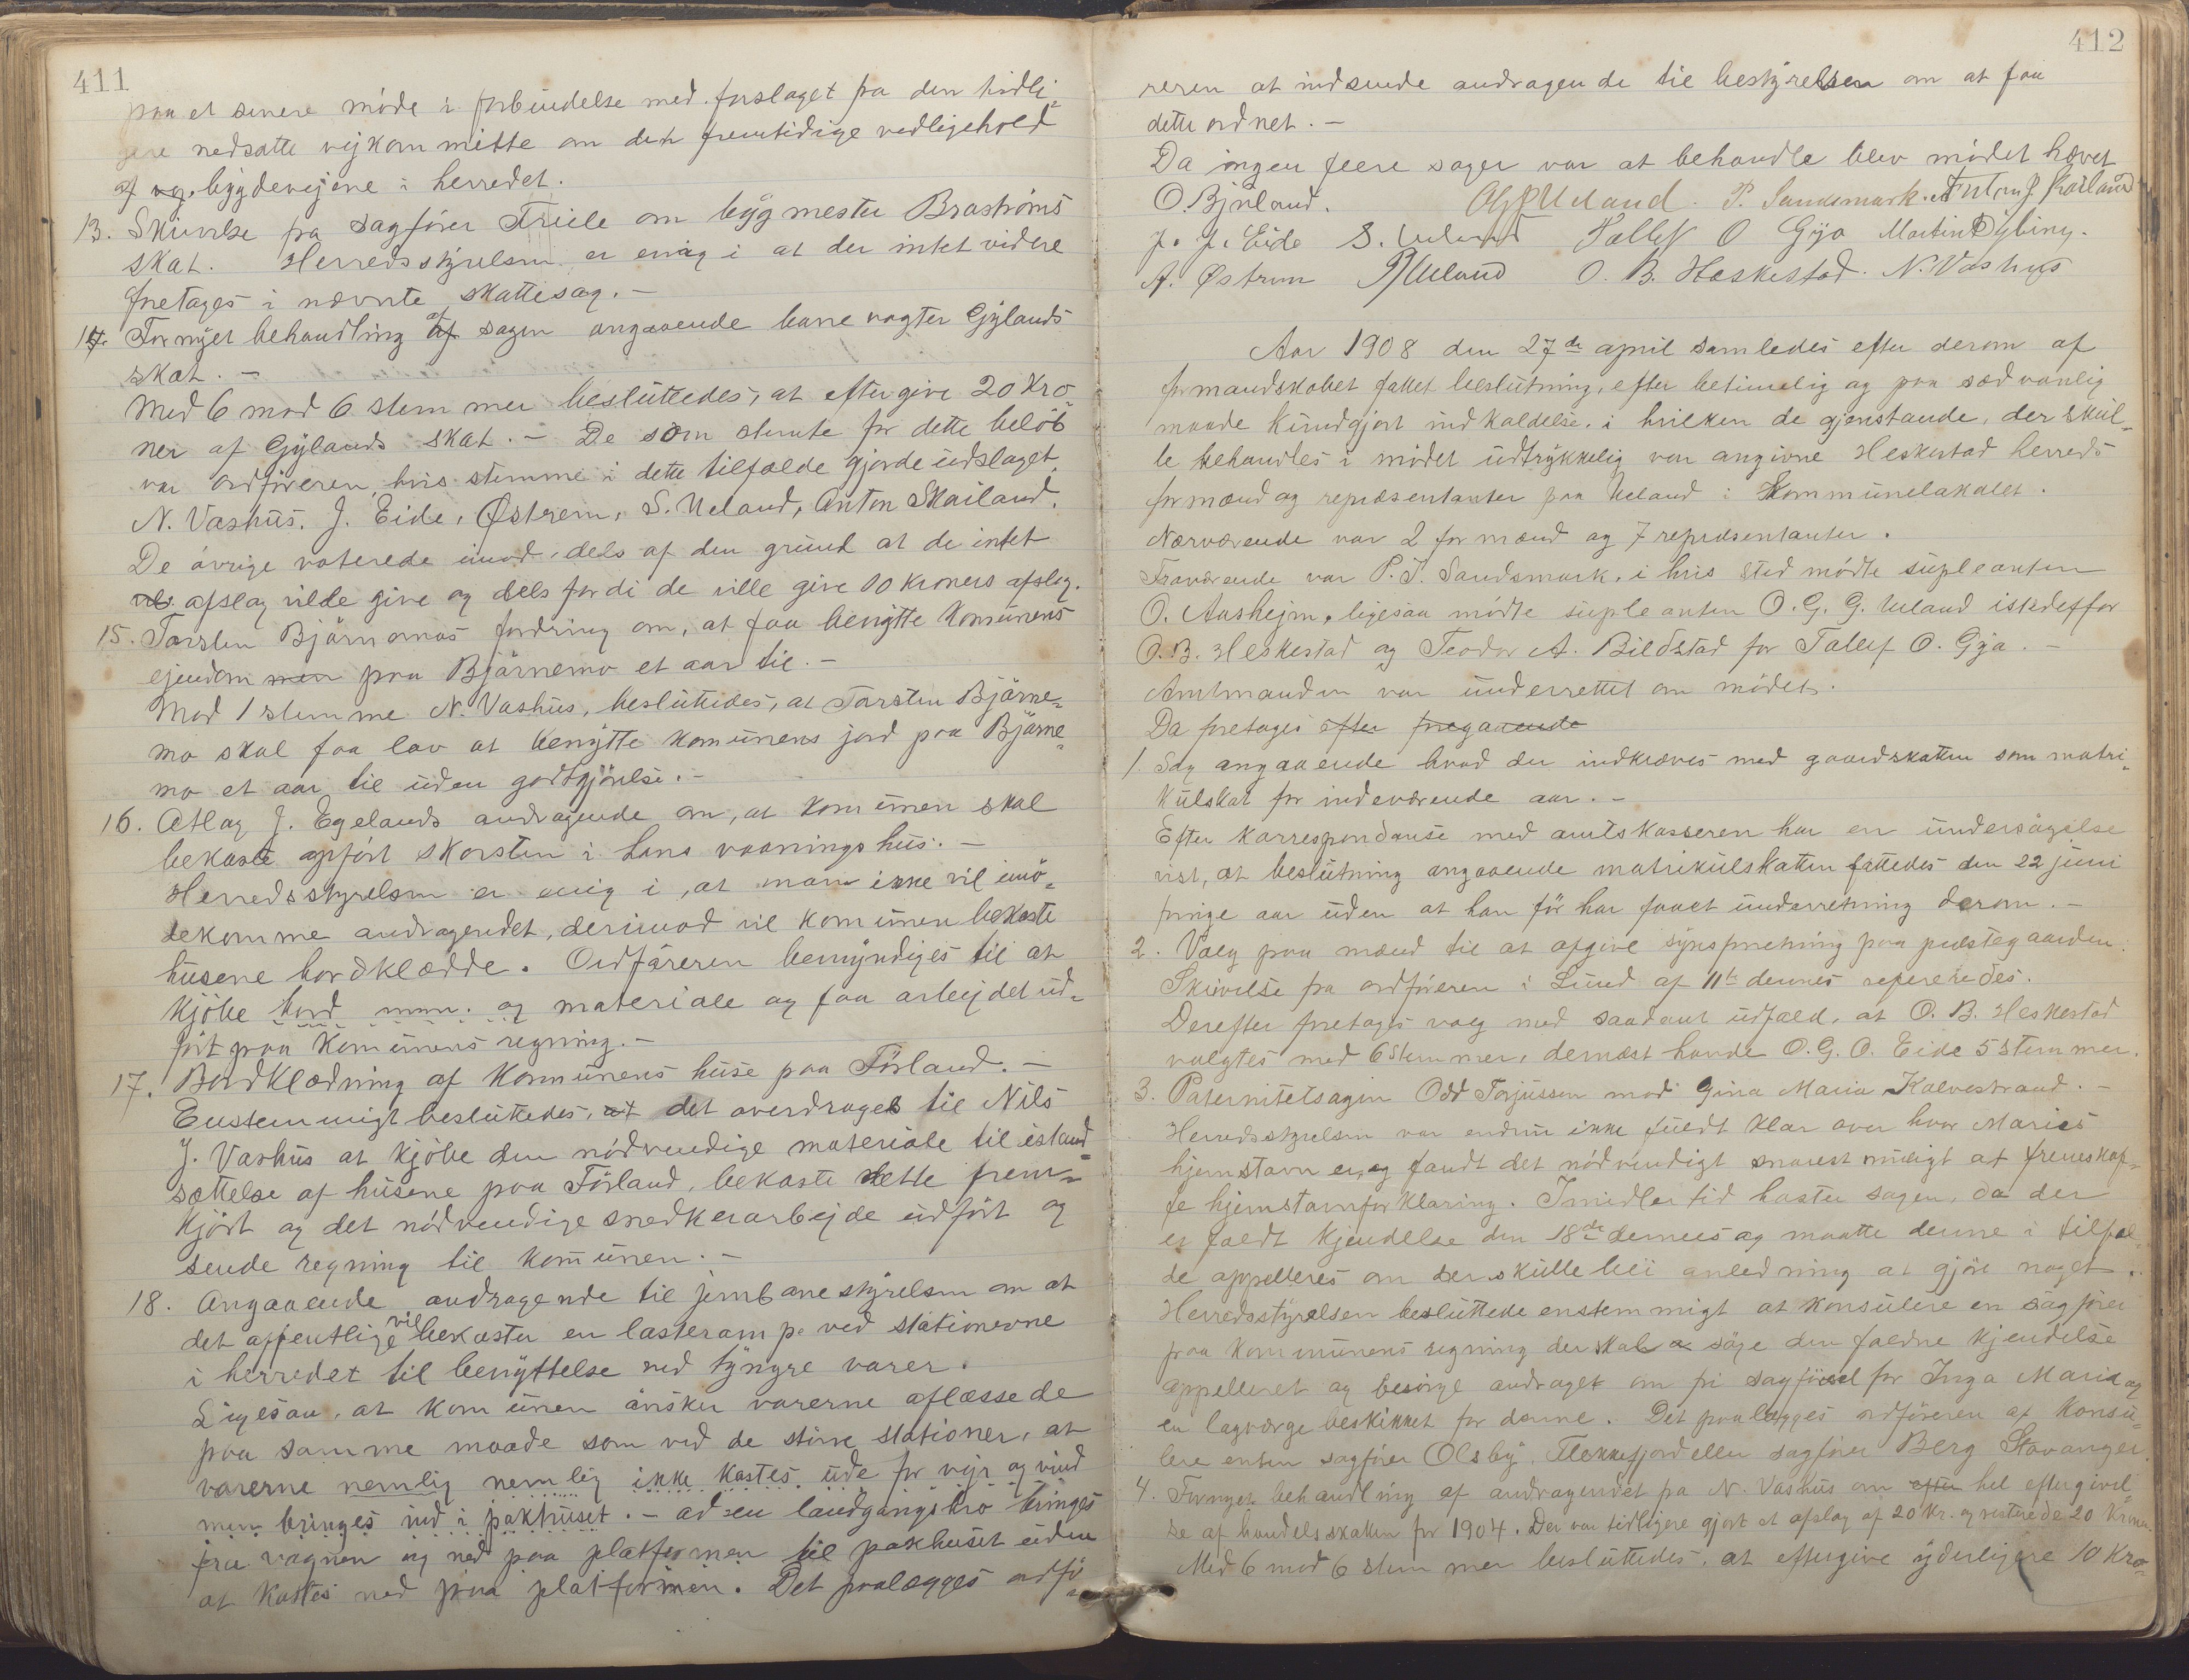 411
paa et senere møde i forbindelse med forslaget fra den tidli-
gere nedsatte vejkommitte om den fremtidige vedligehold
af bygdevejene i herredet.
13. Skrivelse fra sagfører Friele om bygmester Brastrøms
skat. Herredsstyrelsen er enig i at der intet videre
foretages i nævnte skattesag. –
14. Fornyet behandling af sagen angaaende banevogter Gylands
skat. –
Med 6 mod 6 stemmer besluttedes, at eftergive 20 Kro-
ner af Gylands skat. – De som stemte for dette beløb
var ordføreren, hvis stemme i dette tilfælde gjorde udslaget,
N. Vashus. J. Eide, Østrem, S. Ueland, Anton Skailand.
De øvrige voterede imod, dels af den grund at de intet
afslag vilde give og dels fordi de ville give 10 kroners afslag.
15. Torsten Bjørnemos fordring om, at faa benytte Komunens
ejendom paa Bjørnemo et aar til. –
Mod 1 stemme N. Vashus, besluttedes, at Torsten Bjørne-
mo skal faa lov at benytte komunens jord paa Bjørne-
mo et aar til uden godtgjørelse. –
16. Atlag J. Egelands andragende om, at komunen skal
bekoste opført skorsten i hans vaaningshus. –
Herredsstyrelsen er enig i, at man ikke vil imø-
dekomme andragendet, derimod vil komunen bekoste
husene bordklædde. Ordføreren bemyndiges til at
Kjøbe bord m.m. og materiale og faa arbejdet ud-
ført paa Komunens regning. –
17. Bordklædning af Komunens huse paa Førland. –
Enstemmigt besluttedes, at det overdrages til Nils
J. Vashus at kjøbe den nødvendige materiale til istand-
sættelse af husene paa Førland, bekoste dette frem-
kjørt og det nødvendige snedkerarbejde udført og
sende regning til komunen. –
18. Angaaende andragende til jernbanestyrelsen om at
det offentlige vil bekoster en lasterampe ved stationerne
i herredet til benyttelse ved tyngre varer.
Ligesaa, at komunen ønsker varerne aflæssede
paa samme maade som ved de større stationer, at
varerne nemlig nemlig ikke kastes ude for vejr og vind
men bringes ind i pakhuset. – ad en landgangsbro bringes
fra vagnen og ned paa platformen til pakhuset uden
at kastes ned paa platformen. Det paalægges ordfø-
412
reren at indsende andragende til bestyrelsen om at faa
dette ordnet. –
Da ingen flere sager var at behandle blev mødet hævet
O. Bjnland. O G P Ueland. P. Sandsmark. Anton J. Skailand
J. J. Eide S. Ueland Tallef O Gya Martin Dybing.
A. Østrem Ueland O. B. Heskestad. N. Vashus
Aar 1908 den 27de april samledes efter derom af
formandskabet fattet beslutning, efter betimelig og paa sædvanlig
maade kundgjort indkaldelse, i hvilken de gjenstande, der skul-
le behandles i mødet udtrykkelig var angivne Heskestad herreds
formænd og repræsentanter paa Ueland i Kommunelokalet.
Nærværende var 2 formænd og 7 repræsentanter.
Fraværende var P. T. Sandsmark, i hvis sted mødte supleanten
O. Aasheim, ligesaa mødte supleanten O. G. G. Ueland istedetfor
O. B. Heskestad og Teodor A. Bildstad for Tallef O. Gya. –
Amtmanden var underrettet om mødet.
Da foretages efter foregaaende
1. Sag angaaende hvad der indkræves med gaardskatten som matri-
kulskat for indeværende aar. –
Efter korrespondanse med amtskasseren har en undersøgelse
vist, at beslutning angaaende matrikulskatten fattedes den 22 juni
forrige aar uden at han før har faaet underretning derom. –
2. Valg paa mænd til at afgive synsforretning paa præstegaarden.
Skrivelse fra ordføreren i Lund af 11te dennes refereredes.
Derefter foretages valg med saadant udfald, at O. B. Heskestad
valgtes med 6 stemmer, dernæst havde O. G. O. Eide 5 stemmer.
3. Paternitetsagen Odd Torjussen mod Gina Maria Kalvestrand. –
Herredsstyrelsen var endnu ikke fuldt klar over hvor Maries
hjemstavn er, og fandt det nødvendigt snarest muligt at fremskaf-
fe hjemstavnforklaring. Imidlertid haster sagen, da der
er faldt kjendelse den 18de dennes og maatte denne i tilfæl-
de appelleres om der skulle bli anledning at gjøre noget.
Herredsstyrelsen besluttede enstemmigt at konsulere en sagfører
paa kommunens regning der skal søge den faldne kjendelse
appelleret og besørge andraget om fri sagførsel for Inga Maria og
en lagværge beskikket for denne. Det paalægges ordføreren at konsu-
lere enten sagfører Olsby, Flekkefjord eller sagfører Berg Stavanger.
4. Fornyet behandling af andragendet fra N. Vashus om efter hel eftergivel-
se af handelsskatten for 1904. Der var tidligere gjort et afslag af 20 kr. og resterede 20 kroner.
Med 6 mod 6 stemmer besluttedes, at eftergive yderligere 10 Kro-